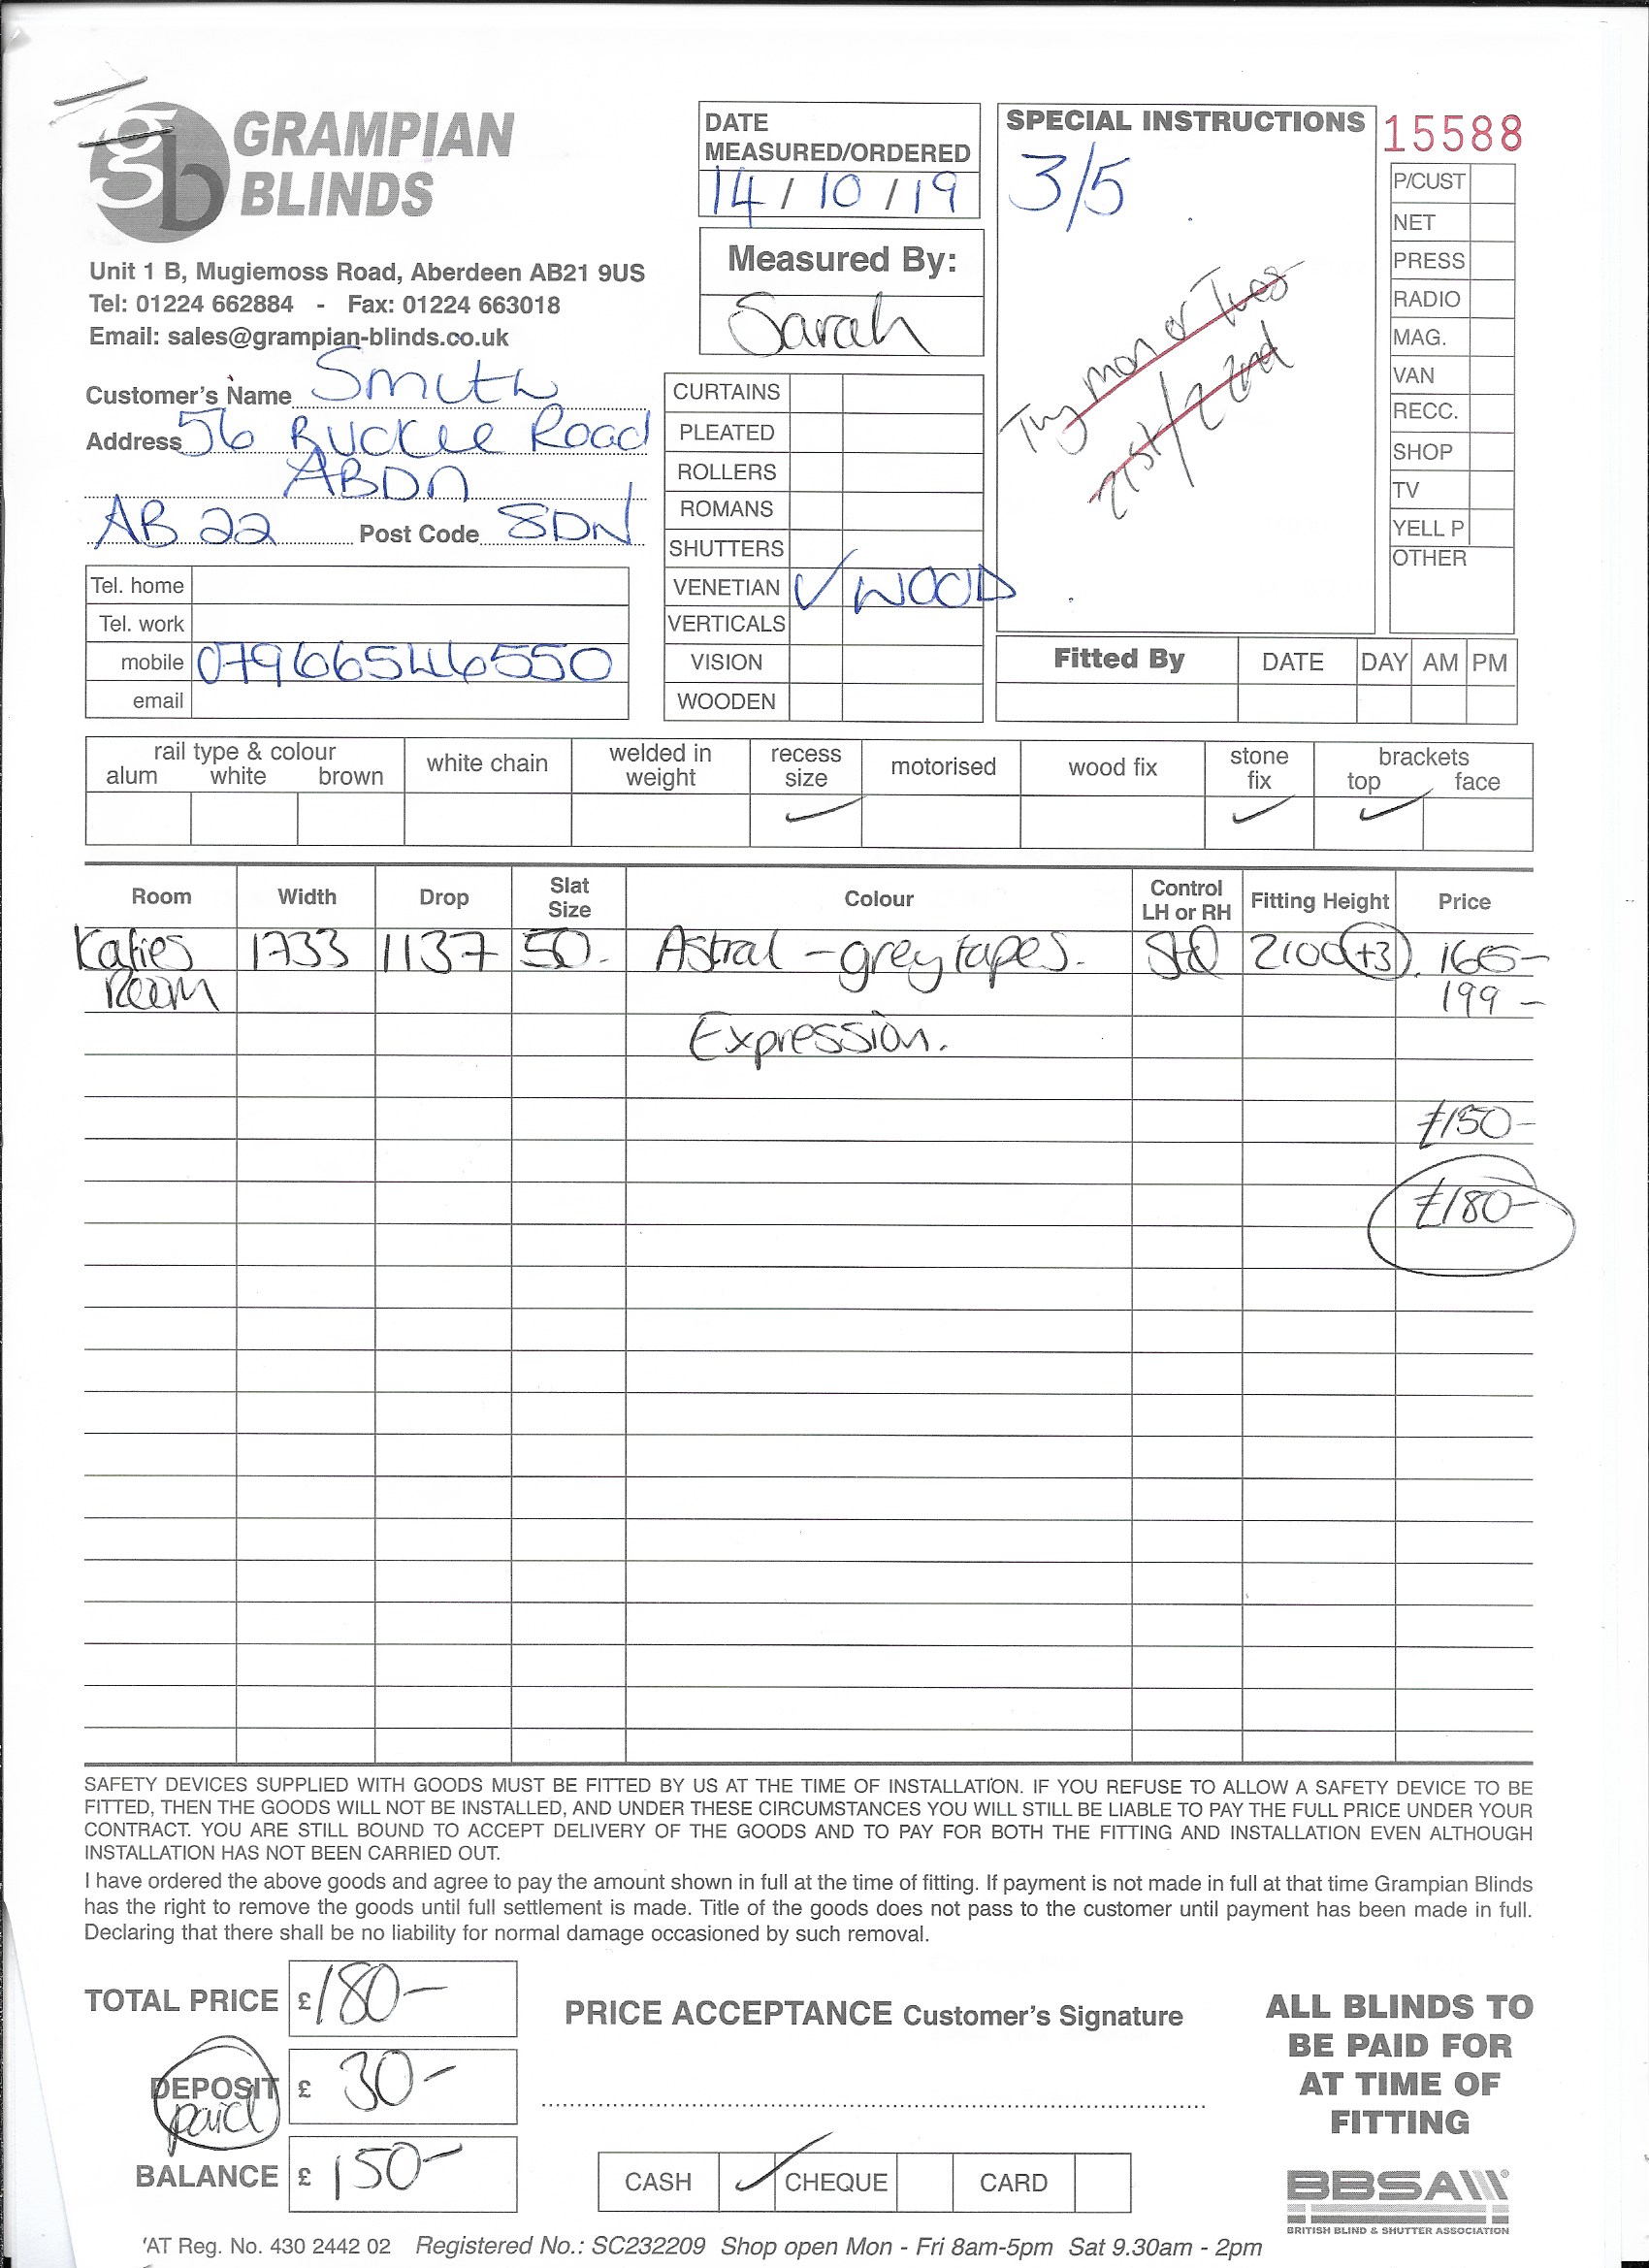 gb GRAMPIAN
BLINDS
Unit 1 B, Mugiemoss Road, Aberdeen AB21 9US
Tel: 01224 662884 - Fax: 01224 663018
Email: sales@grampian-blinds.co.uk
Customer's Name Smith
Address 56 Buckie Road
ABDN
AB 22 Post Code 8DN
Tel. home
Tel. work
mobile 07966546550
email
DATE
MEASURED/ORDERED
14 / 10 / 19
Measured By:
Sarah
CURTAINS
PLEATED
ROLLERS
ROMANS
SHUTTERS
VENETIAN ✓ WOOD
VERTICALS
VISION
WOODEN
SPECIAL INSTRUCTIONS
3/5
Try mon or Tues
21st/22nd
15588
P/CUST
NET
PRESS
RADIO
MAG.
VAN
RECC.
SHOP
TV
YELL P
OTHER
Fitted By DATE DAY AM PM
rail type & colour white chain welded in weight recess size motorised wood fix stone fix brackets
alum white brown top face
✓ ✓ ✓
Room Width Drop Slat Size Colour Control LH or RH Fitting Height Price
Katies 1733 1137 50. Astral - grey tapes. Std 2100 (+3). 165-
Room 199 -
Expression.
£150-
£180-
SAFETY DEVICES SUPPLIED WITH GOODS MUST BE FITTED BY US AT THE TIME OF INSTALLATION. IF YOU REFUSE TO ALLOW A SAFETY DEVICE TO BE
FITTED, THEN THE GOODS WILL NOT BE INSTALLED, AND UNDER THESE CIRCUMSTANCES YOU WILL STILL BE LIABLE TO PAY THE FULL PRICE UNDER YOUR
CONTRACT. YOU ARE STILL BOUND TO ACCEPT DELIVERY OF THE GOODS AND TO PAY FOR BOTH THE FITTING AND INSTALLATION EVEN ALTHOUGH
INSTALLATION HAS NOT BEEN CARRIED OUT.
I have ordered the above goods and agree to pay the amount shown in full at the time of fitting. If payment is not made in full at that time Grampian Blinds
has the right to remove the goods until full settlement is made. Title of the goods does not pass to the customer until payment has been made in full.
Declaring that there shall be no liability for normal damage occasioned by such removal.
TOTAL PRICE £ 180-
DEPOSIT £ 30-
paid
BALANCE £ 150-
PRICE ACCEPTANCE Customer's Signature
CASH ✓ CHEQUE CARD
ALL BLINDS TO
BE PAID FOR
AT TIME OF
FITTING
BBSA
BRITISH BLIND & SHUTTER ASSOCIATION
'AT Reg. No. 430 2442 02 Registered No.: SC232209 Shop open Mon - Fri 8am-5pm Sat 9.30am - 2pm